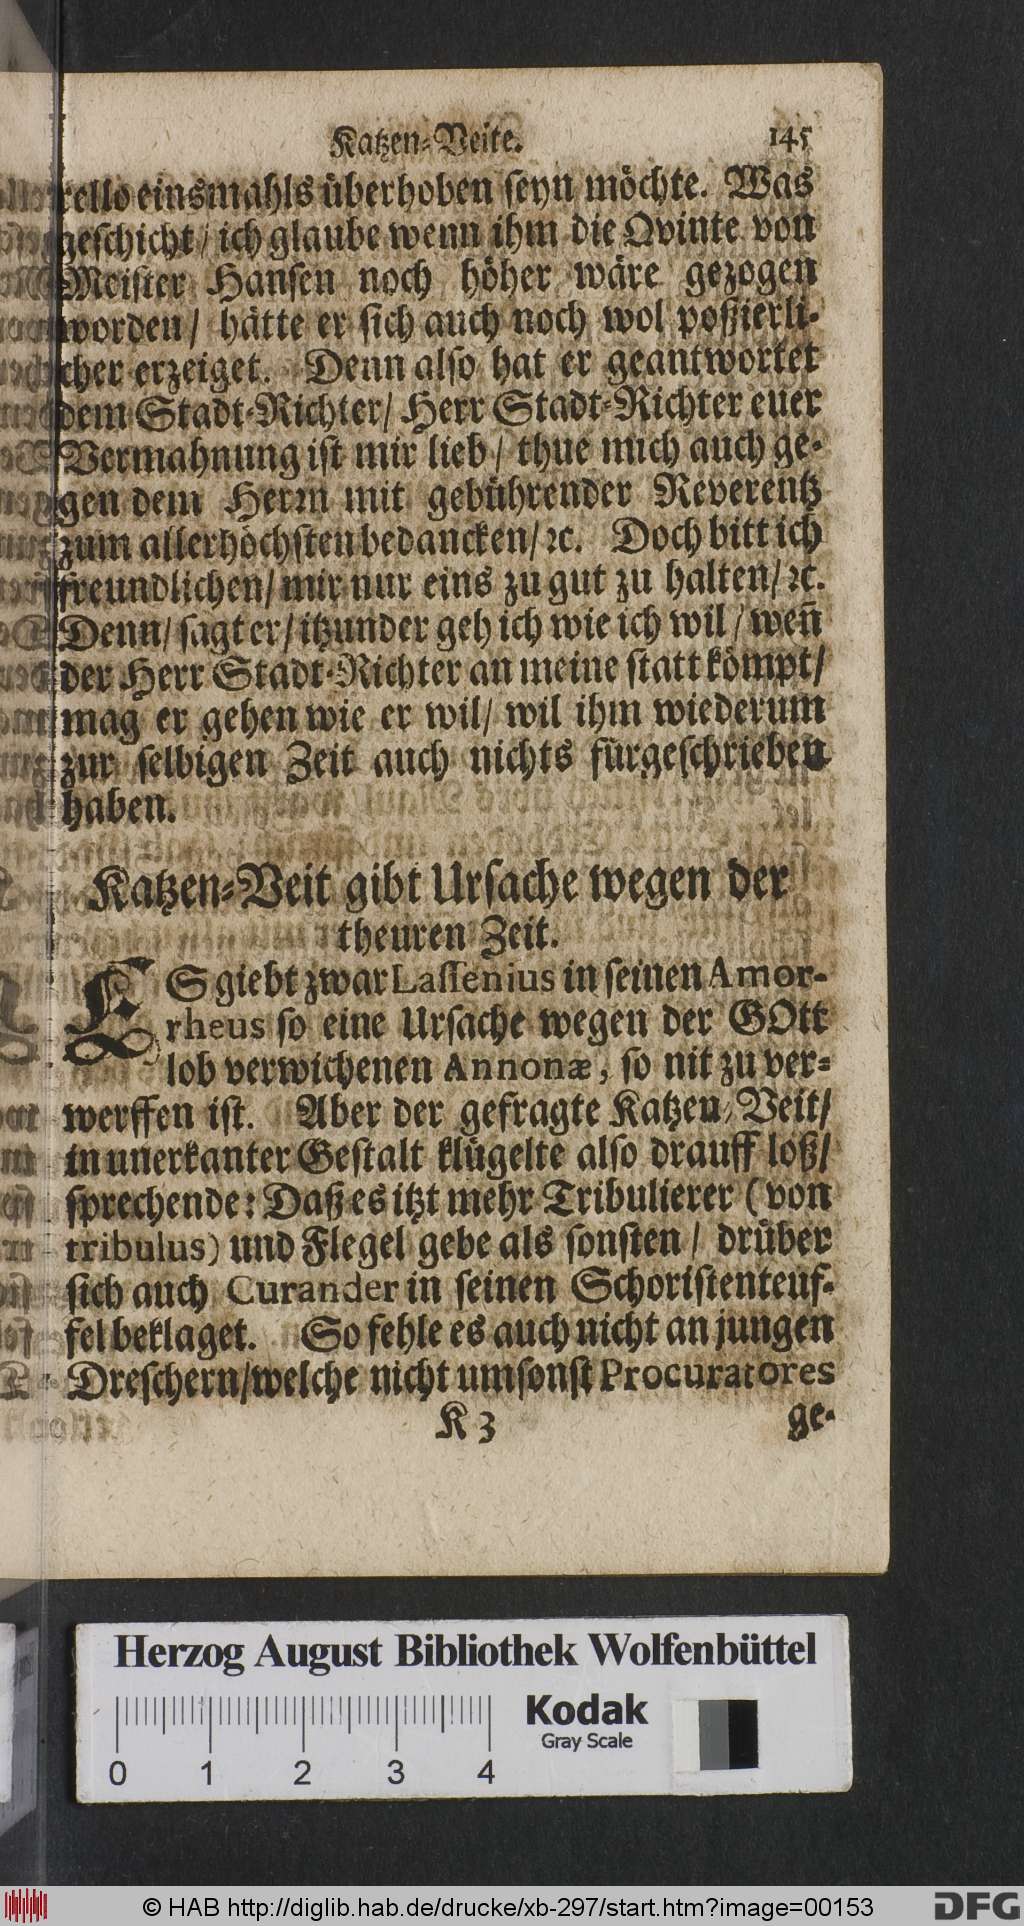 Katzen-Veite. 145
rello einsmahls überhoben seyn möchte. Was
geschicht / ich glaube wenn ihm die Qvinte von
Meister Hansen noch höher wäre gezogen
worden / hätte er sich auch noch wol poßierli-
cher erzeiget. Denn also hat er geantwortet
dem Stadt-Richter / Herr Stadt-Richter euer
Vermahnung ist mir lieb / thue mich auch ge-
gen dem Herrn mit gebührender Reverentz
zum allerhöchsten bedancken / ꝛc. Doch bitt ich
freundlichen / mir nur eins zu gut zu halten / ꝛc.
Denn / sagt er / itzunder geh ich wie ich wil / weñ
der Herr Stadt-Richter an meine statt kömpt /
mag er gehen wie er wil / wil ihm wiederum
zur selbigen Zeit auch nichts fürgeschrieben
haben.
Katzen-Veit gibt Ursache wegen der
theuren Zeit.
ES giebt zwar Lassenius in seinen Amor-
rheus so eine Ursache wegen der GOtt
lob verwichenen Annonæ, so nit zu ver-
werffen ist. Aber der gefragte Katzen-Veit /
in unerkanter Gestalt klügelte also drauff loß /
sprechende: Daß es itzt mehr Tribulierer (von
tribulus) und Flegel gebe als sonsten / drüber
sich auch Curander in seinen Schoristenteuf-
fel beklaget. So fehle es auch nicht an jungen
Dreschern / welche nicht umsonst Procuratores
K 3 ge-
Herzog August Bibliothek Wolfenbüttel
Kodak
Gray Scale
0 1 2 3 4
© HAB http://diglib.hab.de/drucke/xb-297/start.htm?image=00153 DFG